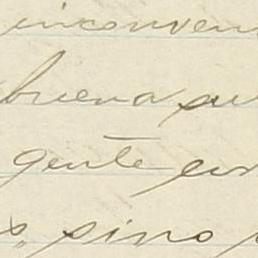 inconven
buena su
gente en
s, sino